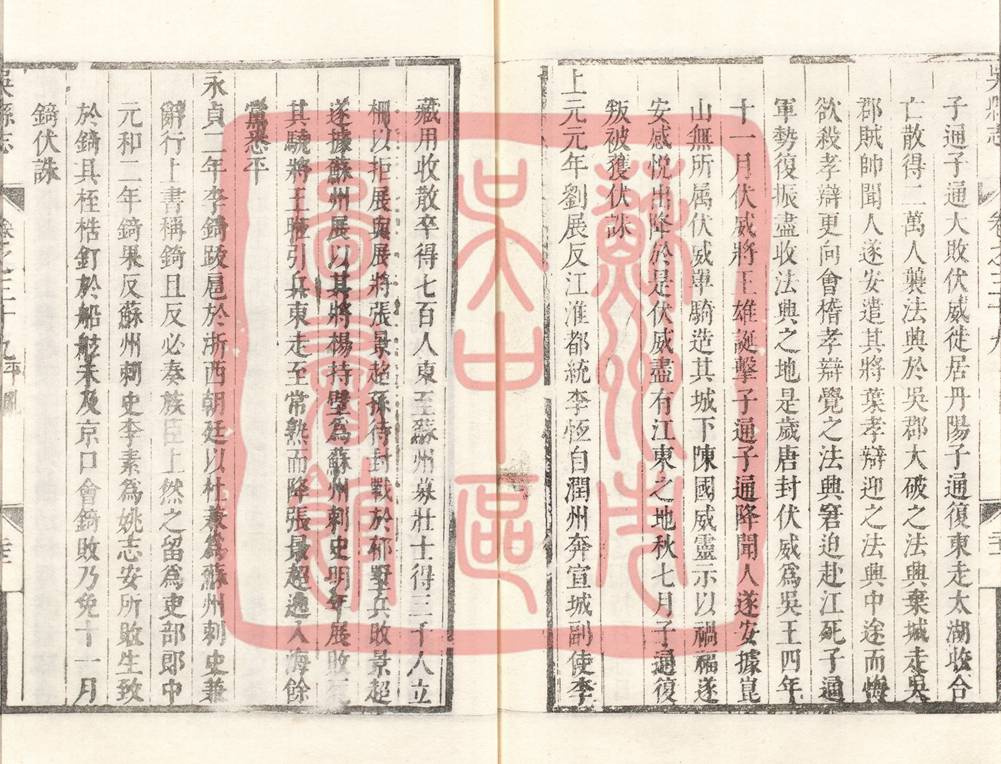 吳縣志
卷之三十九
子通子通大敗伏威徙居丹陽子通復東走太湖收合
亡散得二萬人襲法興於吳郡大破之法興棄城走吳
郡賊帥聞人遂安遣其將葉孝辯迎之法興中途而悔
欲殺孝辯更向會稽孝辯覺之法興窘迫赴江死子通
軍勢復振盡收法興之地是歲唐封伏威為吳王四年
十一月伏威將王雄誕擊子通子通降聞人遂安據崑
山無所属伏威單騎造其城下陳國威靈示以禍福遂
安感悅出降於是伏威盡有江東之地秋七月子通復
叛被獲伏誅
上元元年劉展反江淮都統李恆自潤州奔宣城副使李
藏用收散卒得七百人東至蘇州募壯士得三千人立
柵以拒展與展將張景超孫待封戰於郁墅兵敗景超
遂據蘇州展以其將楊持璧為蘇州刺史明年展敗
其驍將王暅引兵東走至常熟而降張景超逃入海餘
黨悉平
永貞二年李錡跋扈於浙西朝廷以杜兼為蘇州刺史兼
辭行上書稱錡且反必奏族臣上然之留為吏部郎中
元和二年錡果反蘇州刺史李素為姚志安所敗生致
於錡具桎梏釘於船舷未及京口會錡敗乃免十一月
錡伏誅
吳縣志
卷之三十九
蘇州市
吳中區
圖書館